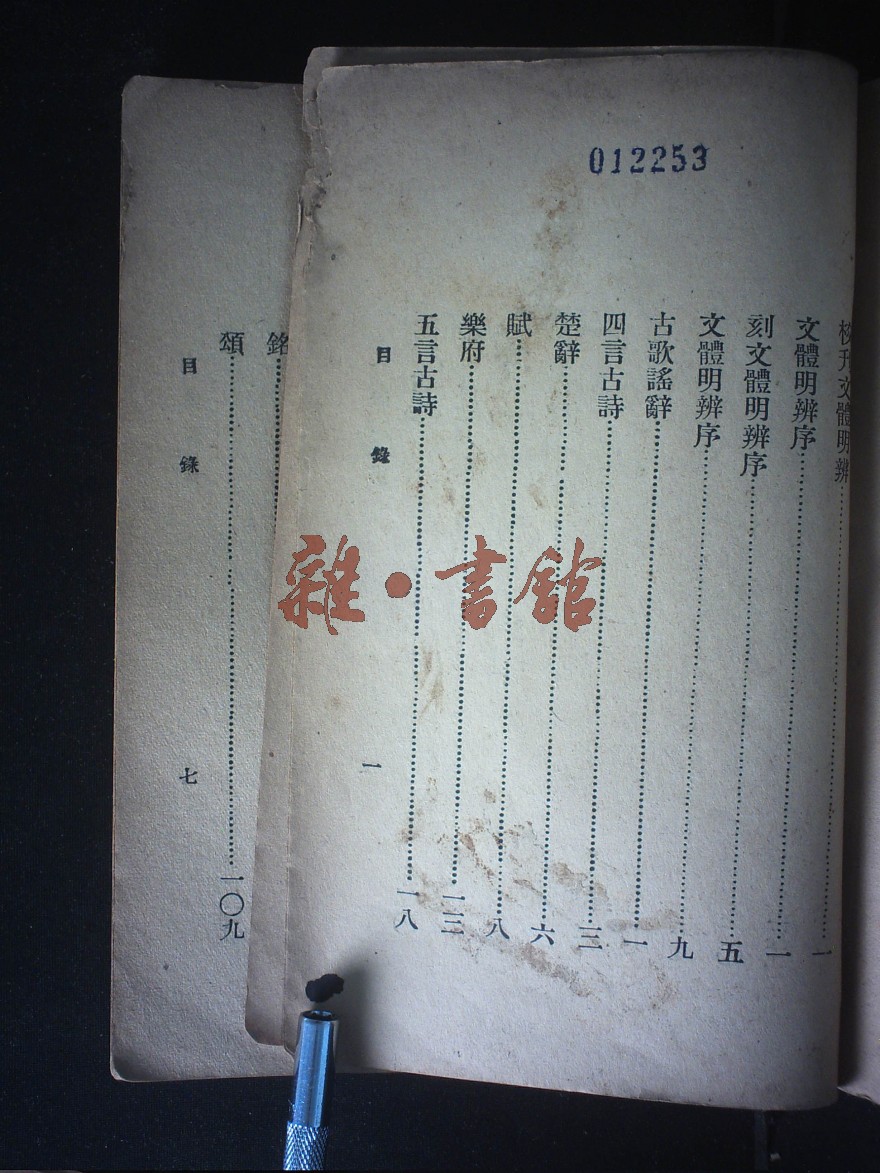 012253
校刊文體明辨……一
文體明辨序……一
刻文體明辨序……五
文體明辨序……九
古歌謠辭……一
四言古詩……三
楚辭……六
賦……八
樂府……一三
五言古詩……一八
目錄 一
銘……
頌……一〇九
目錄 七
雜·書館